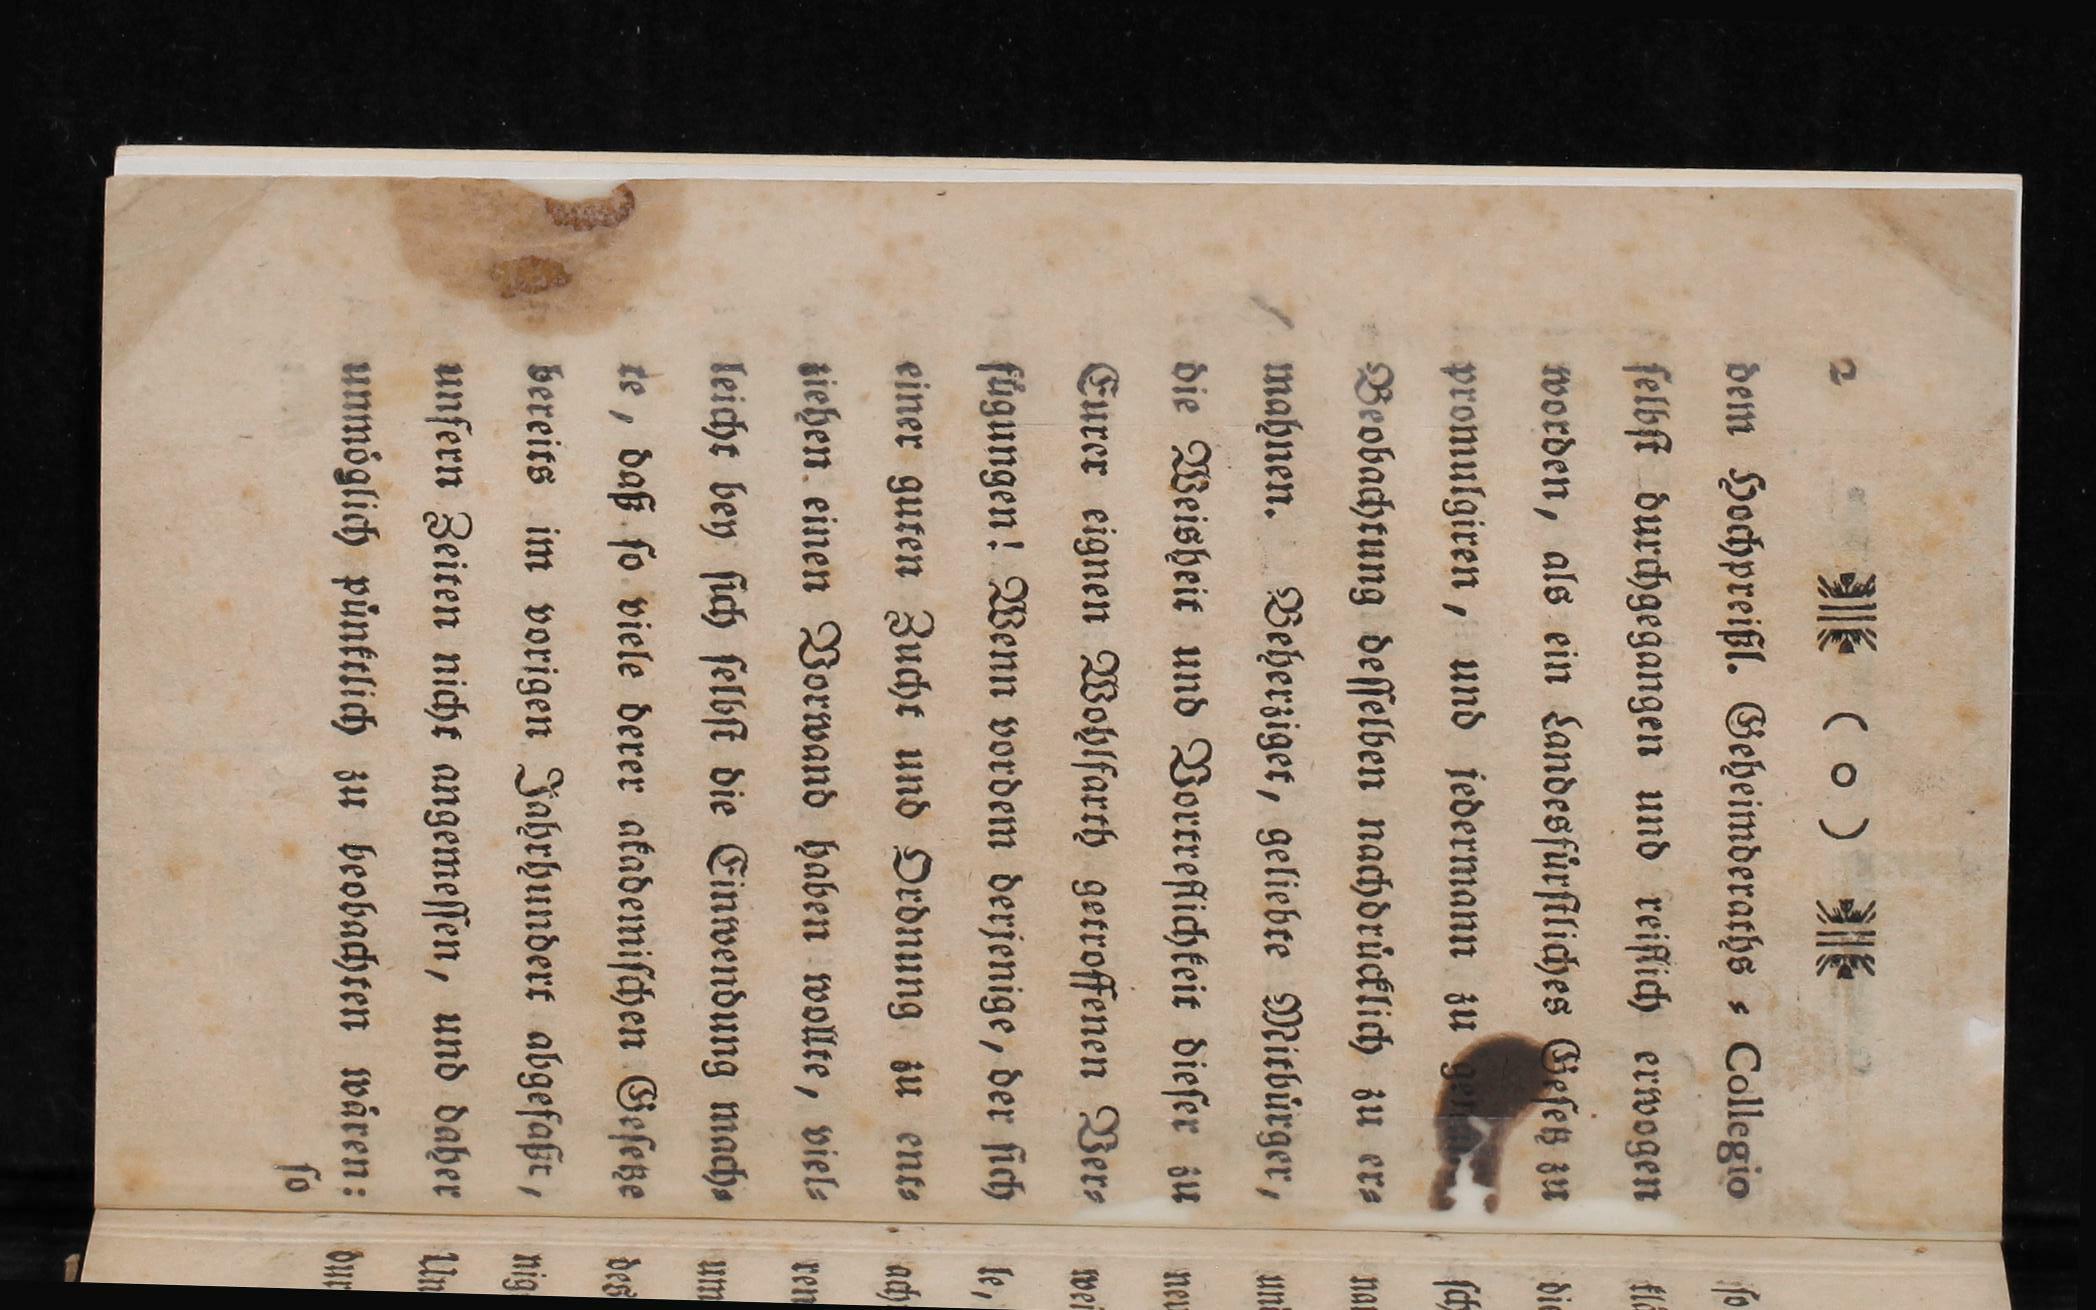 2 ( o )
dem Hochpreißl. Geheimderaths ⸗ Collegio
selbst durchgegangen und reiflich erwogen
worden, als ein Landesfürstliches Gesetz zu
promulgiren, und jedermann zu
Beobachtung desselben nachdrücklich zu er⸗
mahnen. Beherziget, geliebte Mitbürger,
die Weisheit und Vortreflichkeit dieser zu
Eurer eignen Wohlfarth getroffenen Ver⸗
fügungen! Wenn vordem derjenige, der sich
einer guten Zucht und Ordnung zu ent⸗
ziehen einen Vorwand haben wollte, viel⸗
leicht bey sich selbst die Einwendung mach⸗
te, daß so viele derer akademischen Gesetze
bereits im vorigen Jahrhundert abgefaßt,
unsern Zeiten nicht angemessen, und daher
unmöglich pünktlich zu beobachten wären:
so